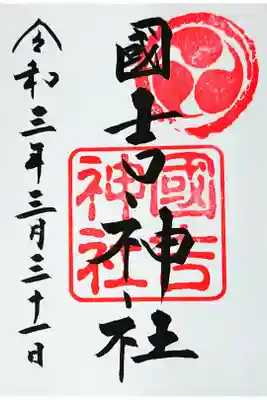 國吉神社
國吉神社
令和三年三月三十一日